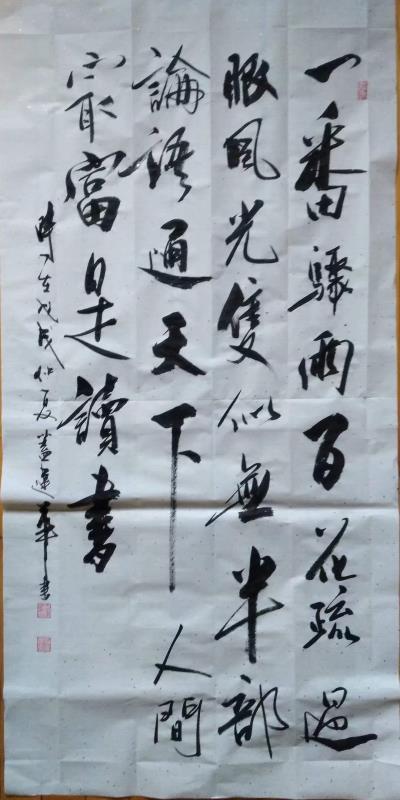 一番驟雨百花疏過
眼風光隻似無半部
論語通天下人間
㝡富是讀書
時在戊戌仲夏華書